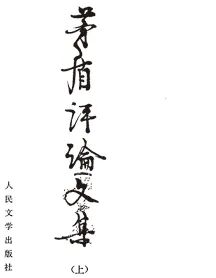 茅盾评论文集
（上）
人民文学出版社